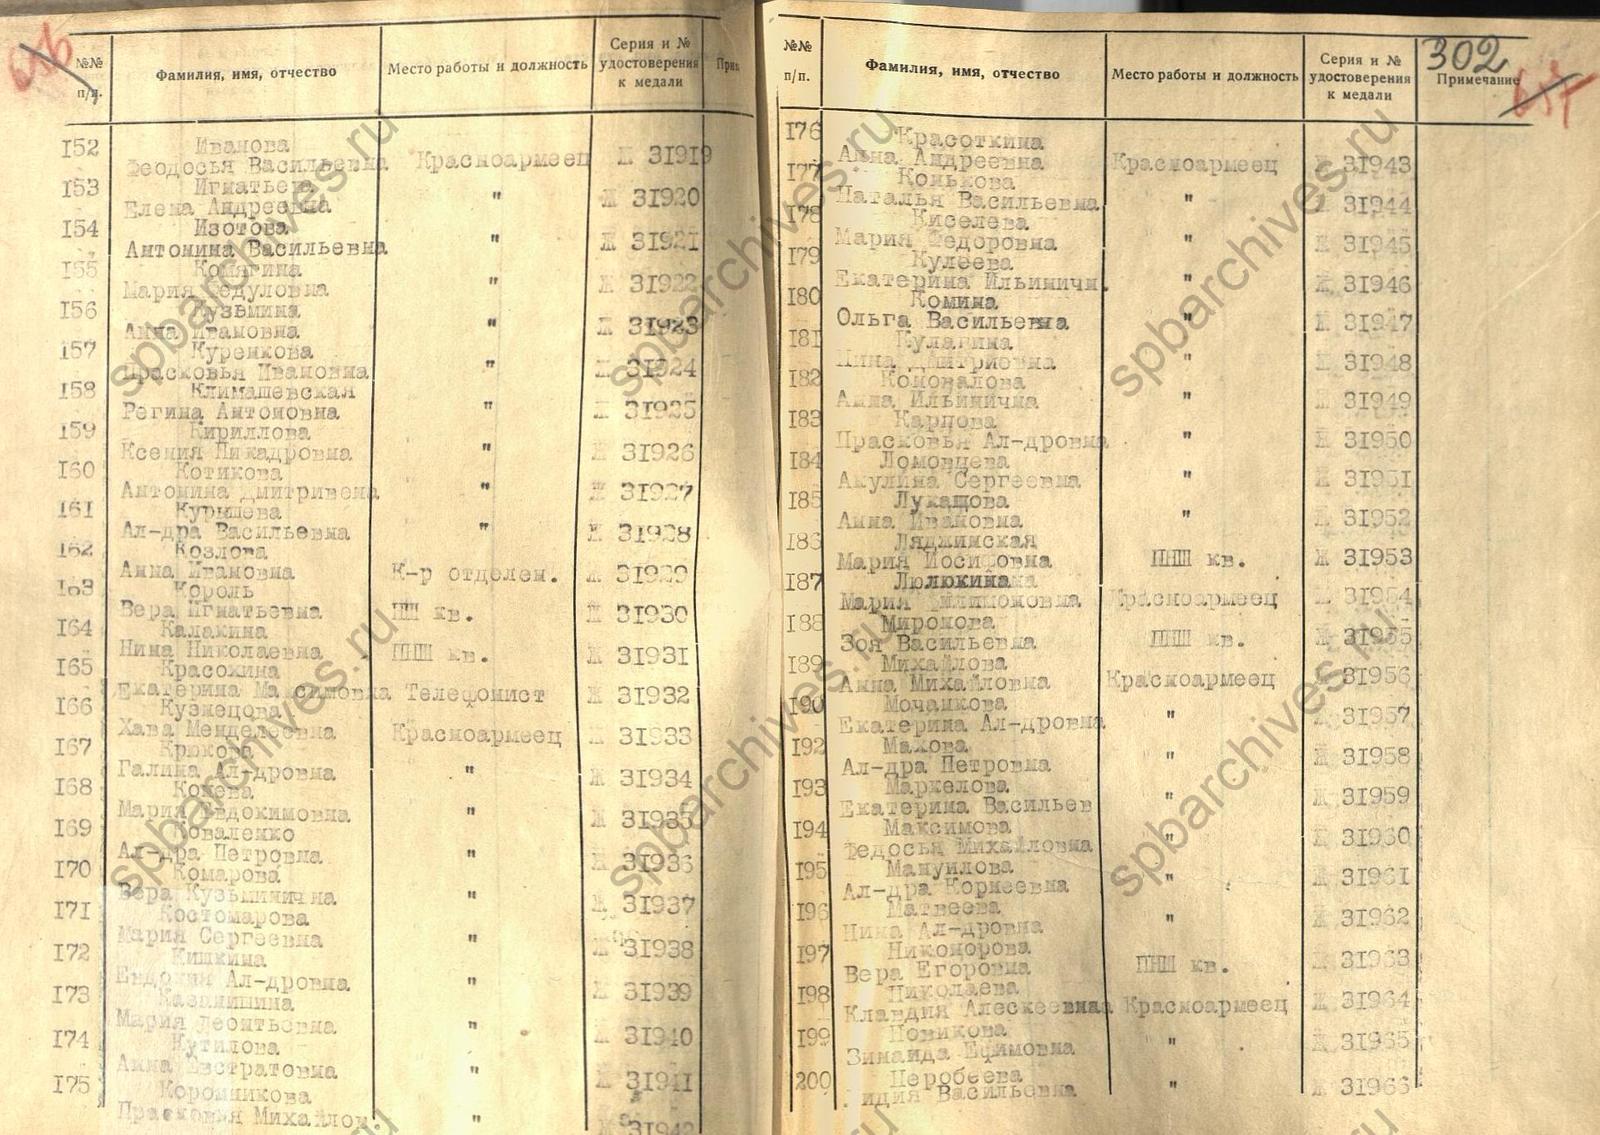 №№ п/п. Фамилия, имя, отчество Место работы и должность Серия и № удостоверения к медали
152 Иванова
Феодосья Васильевна Красноармеец Ж 31919
153 Игнатьева
Елена Андреевна " Ж 31920
154 Изотова
Антонина Васильевна " Ж 31921
155 Комягина
Мария Федуловна " Ж 31922
156 Кузьмина
Анна Ивановна " Ж 31923
157 Куренкова
Прасковья Ивановна " Ж 31924
158 Климашевская
Регина Антоновна " Ж 31925
159 Кириллова
Ксения Никадровна " Ж 31926
160 Котикова
Антонина Дмитривена " Ж 31927
161 Курышева
Ал-дра Васильевна " Ж 31928
162 Козлова
Анна Ивановна К-р отделен. Ж 31929
163 Король
Вера Игнатьевна ПНШ кв. Ж 31930
164 Калакина
Нина Николаевна ПНШ кв. Ж 31931
165 Красохина
Екатерина Максимовна Телефонист Ж 31932
166 Кузнецова
Хава Менделеевна Красноармеец Ж 31933
167 Крюкова
Галина Ал-дровна " Ж 31934
168 Конева
Мария Евдокимовна " Ж 31935
169 Коваленко
Ал-дра Петровна " Ж 31936
170 Комарова
Вера Кузьминична " Ж 31937
171 Костомарова
Мария Сергеевна " Ж 31938
172 Кишкина
Евдокия Ал-дровна " Ж 31939
173 Казанишина
Мария Леонтьевна " Ж 31940
174 Кутилова
Анна Евстратовна " Ж 31941
175 Коромникова
Прасковия Михайлов. " Ж 31942
302
№№ п/п. Фамилия, имя, отчество Место работы и должность Серия и № удостоверения к медали Примечание
176 Красоткина
Анна Андреевна Красноармеец Ж 31943
177 Конькова
Наталья Васильевна " Ж 31944
178 Киселева
Мария Федоровна " Ж 31945
179 Кулеева
Екатерина Ильиничн. " Ж 31946
180 Комина
Ольга Васильевна " Ж 31947
181 Кулагина
Нина Дмитриевна " Ж 31948
182 Коновалова
Анна Ильинична " Ж 31949
183 Карпова
Прасковья Ал-дровна " Ж 31950
184 Ломовцева
Акулина Сергеевна " Ж 31951
185 Лукашова
Анна Ивановна " Ж 31952
186 Ляджинская
Мария Иосифовна ПНШ кв. Ж 31953
187 Люлюкинана
Мария Филимоновна Красноармеец Ж 31954
188 Миронова
Зоя Васильевна ПНШ кв. Ж 31955
189 Михайлова
Анна Михайловна Красноармеец Ж 31956
190 Мочалкова
Екатерина Ал-дровна " Ж 31957
192 Махова
Ал-дра Петровна " Ж 31958
193 Маркелова
Екатерина Васильев " Ж 31959
194 Максимова
Федосья Михайловна " Ж 31960
195 Мануилова
Ал-дра Корнеевна " Ж 31961
196 Матвеева
Нина Ал-дровна " Ж 31962
197 Никонорова
Вера Егоровна ПНШ кв. Ж 31963
198 Николаева
Клавдия Алескеевнаа Красноармеец Ж 31964
199 Новикова
Зинаида Ефимовна " Ж 31965
200 Перобеева
Лидия Васильевна " Ж 31966
spbarchives.ru
spbarchives.ru
spbarchives.ru
spbarchives.ru
spbarchives.ru
spbarchives.ru